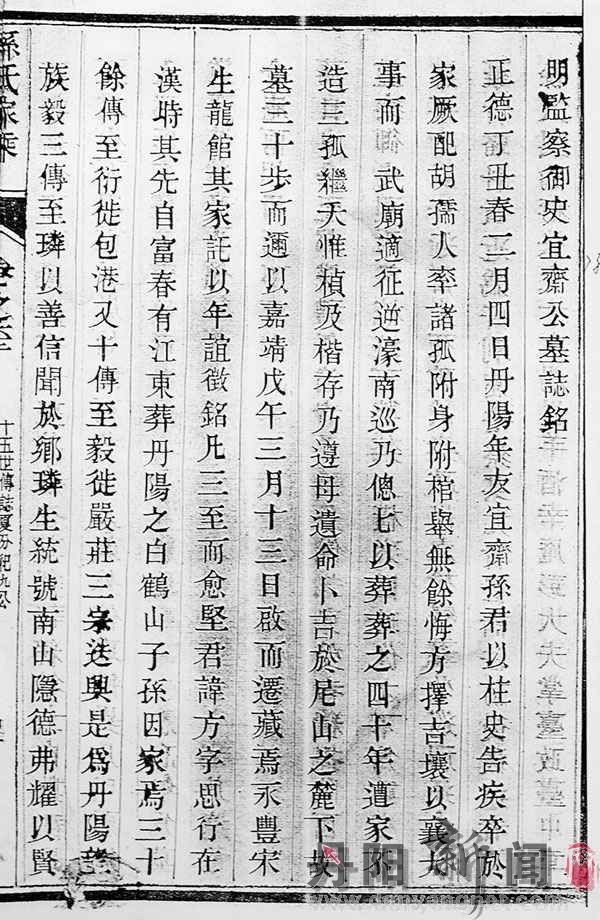 明監察御史宜齋公墓誌銘
正德丁丑春三月四日丹陽年友宜齋孫君以柱史告疾卒於
家厥配胡孺人率諸孤附身附棺舉無餘悔方擇吉壤以襄大
事而 武廟適征逆濠南巡乃傯乜以葬葬之四十年遭家不
造三孤繼夭惟楨及楷存乃遵母遺命卜吉於尼山之麓下故
墓三十步而邇以嘉靖戊午三月十三日啟而遷藏焉永豐宋
生龍館其家託以年誼徵銘凡三至而愈堅君諱方字思行在
漢時其先自富春有江東葬丹陽之白鶴山子孫因家焉三十
餘傳至衍徙包港又十傳至毅徙嚴莊三宗迭興是為丹陽著
族毅三傳至璘以善信聞於鄉璘生統號南山隱德弗耀以賢
孫氏家乘
十五世傳誌
丹阳新闻